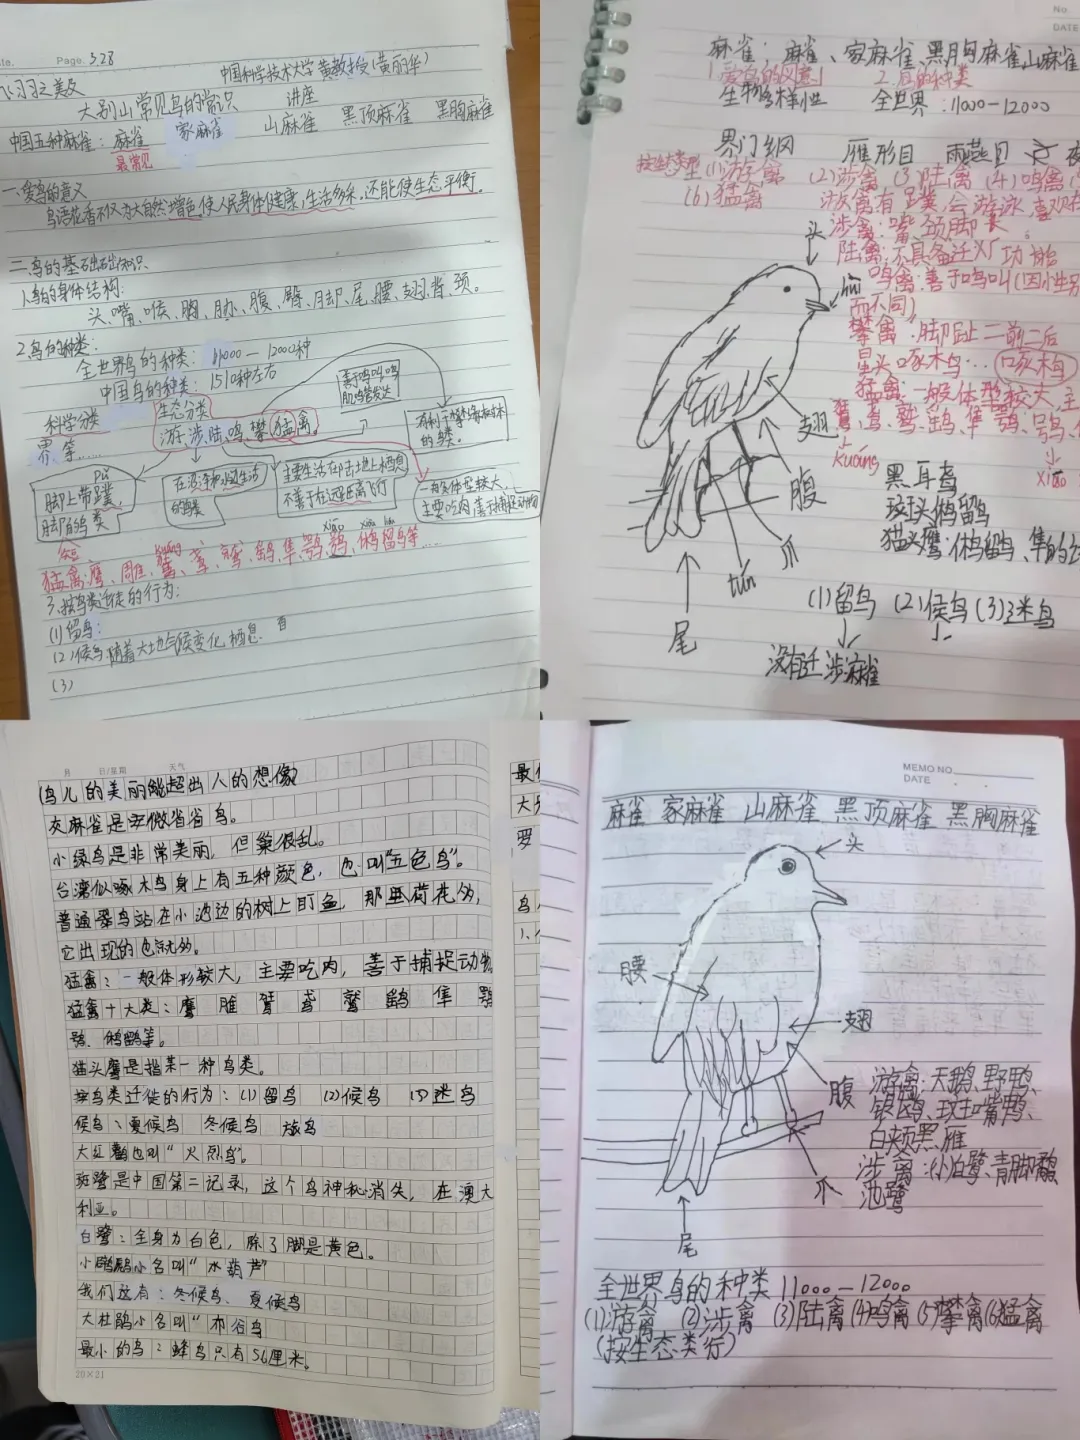 Page. 3.28
中国科学技术大学 黄教授(黄丽华)
飞羽之美及
大别山常见鸟的常识 讲座
中国五种麻雀：麻雀 家麻雀 山麻雀 黑顶麻雀 黑胸麻雀
最常见
一、爱鸟的意义
鸟语花香不仅为大自然增色,使人民身体健康,生活多采,还能使生态平衡.
二.鸟的基础知识
1.鸟的身体结构:
头、嘴、喉、胸、胁、腹、臀、脚、尾、腰、翅、背、颈。
2.鸟的种类:
全世界鸟的种类: 11000－12000种
中国鸟的种类: 1510种左右
科学分类
界、等……
生态分类
游.涉.陆.鸣.攀.猛禽.
善于鸣叫,鸣肌鸣管发达
有利于攀缘树木的鸟类。
pǔ
脚上带蹼,
的鸟类
在沼泽和水边生活
的鸟类
主要生活在陆地上栖息
不善于在远距离飞行
一般体型较大,
主要吃肉,善于捕捉动物
猛禽:鹰、雕、鵟、鸢、鹫、鹞、隼、鹗、鸮、鸺鹠等……
3.按鸟类迁徙的行为:
(1)留鸟:
(2)候鸟 随着大地气候变化 栖息
(3)
No.
DATE
麻雀：麻雀、家麻雀、黑胸麻雀山麻雀
1.爱鸟的意义 2.鸟的种类
生物多样性 全世界：11000-12000
界门纲 雁形目 雨燕目
按生态类型 (1)游禽 (2)涉禽 (3)陆禽 (4)鸣禽
(6)猛禽 游禽有足蹼,会游泳,喜欢
头 涉禽：嘴、颈脚长。
陆禽：不具备迁
鸣禽：善于鸣叫(因性别
huì
而不同)
攀禽：脚趾二前二后
星头啄木鸟…啄木鸟
猛禽：一般体型较大,主
鵟、鸢、鹫、鹞、隼、鹗、鸮、
翅
kuáng
xiāo
腹
黑耳鸢
斑头鸺鹠
猫头鹰：鸺鹠、隼的
爪
tún
尾
(1)留鸟 (2)候鸟 (3)迷鸟
没有迁涉麻雀
月 日/星期 天气
(鸟儿的美丽能超出人的想像
灰麻雀是安徽省省鸟。
小绿鸟是非常美丽，但巢很乱。
台湾似啄木鸟身上有五种颜色，也叫"五色鸟"。
普通翠鸟站在小池边的树上盯鱼，那里荷花多，
它出现的也就多。
猛禽：一般体形较大，主要吃肉，善于捕捉动物
猛禽十大类：鹰 雕 鵟 鸢 鹫 鹞 隼 鹗
鸮、鸺鹠等。
猫头鹰是指某一种鸟类。
按鸟类迁徙的行为：(1)留鸟 (2)候鸟 (3)迷鸟
候鸟：夏候鸟 冬候鸟 旅鸟
大红鹳也叫"火烈鸟"。
斑鹭是中国第二记录，这个鸟神秘消失，在澳大
利亚。
白鹭：全身为白色，除了脚是黄色。
小䴙䴘小名叫"水葫芦"
我们这有：冬候鸟、夏候鸟
大杜鹃小名叫"布谷鸟
最小的鸟：蜂鸟只有5.6厘米。
20×21
MEMO NO.
DATE
麻雀 家麻雀 山麻雀 黑顶麻雀 黑胸麻雀
头
腰
翅
腹
游禽:天鹅、野鸭、
银鸥、斑嘴鸭、
白颊黑雁
涉禽:(小)白鹭、青脚鹬
池鹭
爪
尾
全世界鸟的种类 11000－12000
(1)游禽 (2)涉禽 (3)陆禽 (4)鸣禽 (5)攀禽(6)猛禽
(按生态类行)